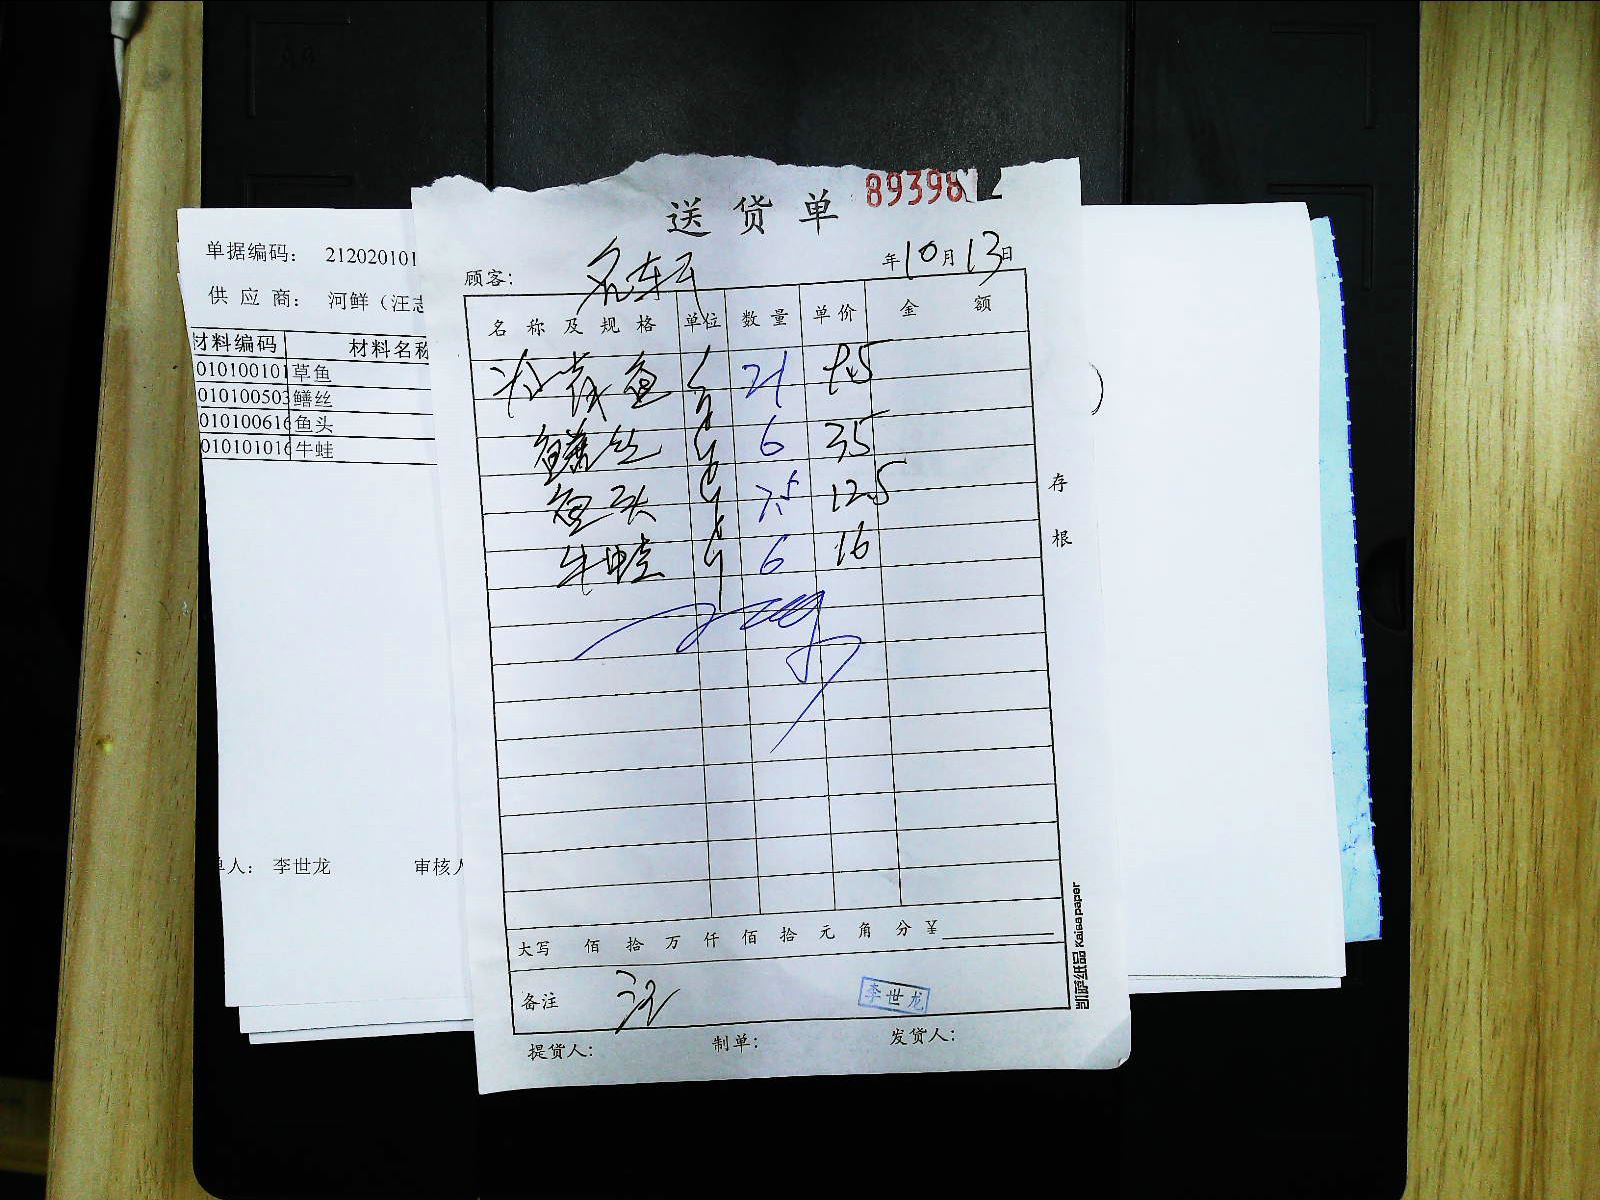 送货单 89398
顾客: 年10月13日
名称及规格 单位 数量 单价 金额
鱼 斤 21 9.5
鳝丝 斤 6 35
鱼头 斤 7.5 12.5
牛蛙 斤 6 16
大写 佰 拾 万 仟 佰 拾 元 角 分 ¥
备注 汪 李世龙
提货人: 制单: 发货人:
存根
凯萨纸品 Kaisa paper
单据编码: 212020101
供应商: 河鲜（汪志
材料编码 材料名称
010100101 草鱼
010100503 鳝丝
010100616 鱼头
010101016 牛蛙
单人: 李世龙 审核人